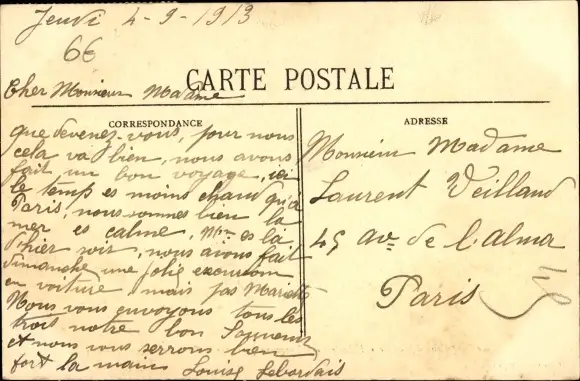 Jeudi 4-9-1913
66
Cher Monsieur Madame
CARTE POSTALE
CORRESPONDANCE
que devenez-vous, pour nous
cela va bien, nous avons
fait un bon voyage, ici
le temp es moins chaud qu'a
Paris, nous sommes bien la
mer es calme, Mr es la
d'hier soir, nous avons fait
dimanche une jolie excursion
en voiture, mais pas Mariette
Nous vous envoyons tous les
trois notre bon Souvenir
et nous vous serrons bien
fort la main Louise Lebordais
ADRESSE
Monsieur Madame
Laurent Veilland
45 ave de l'Alma
Paris